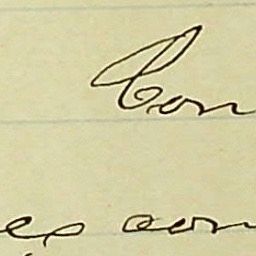 Con
es con